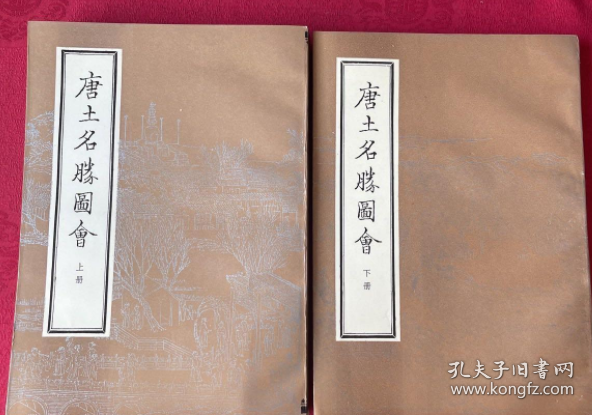 唐土名勝圖會
上册
唐土名勝圖會
下册
孔夫子旧书网
www.kongfz.com